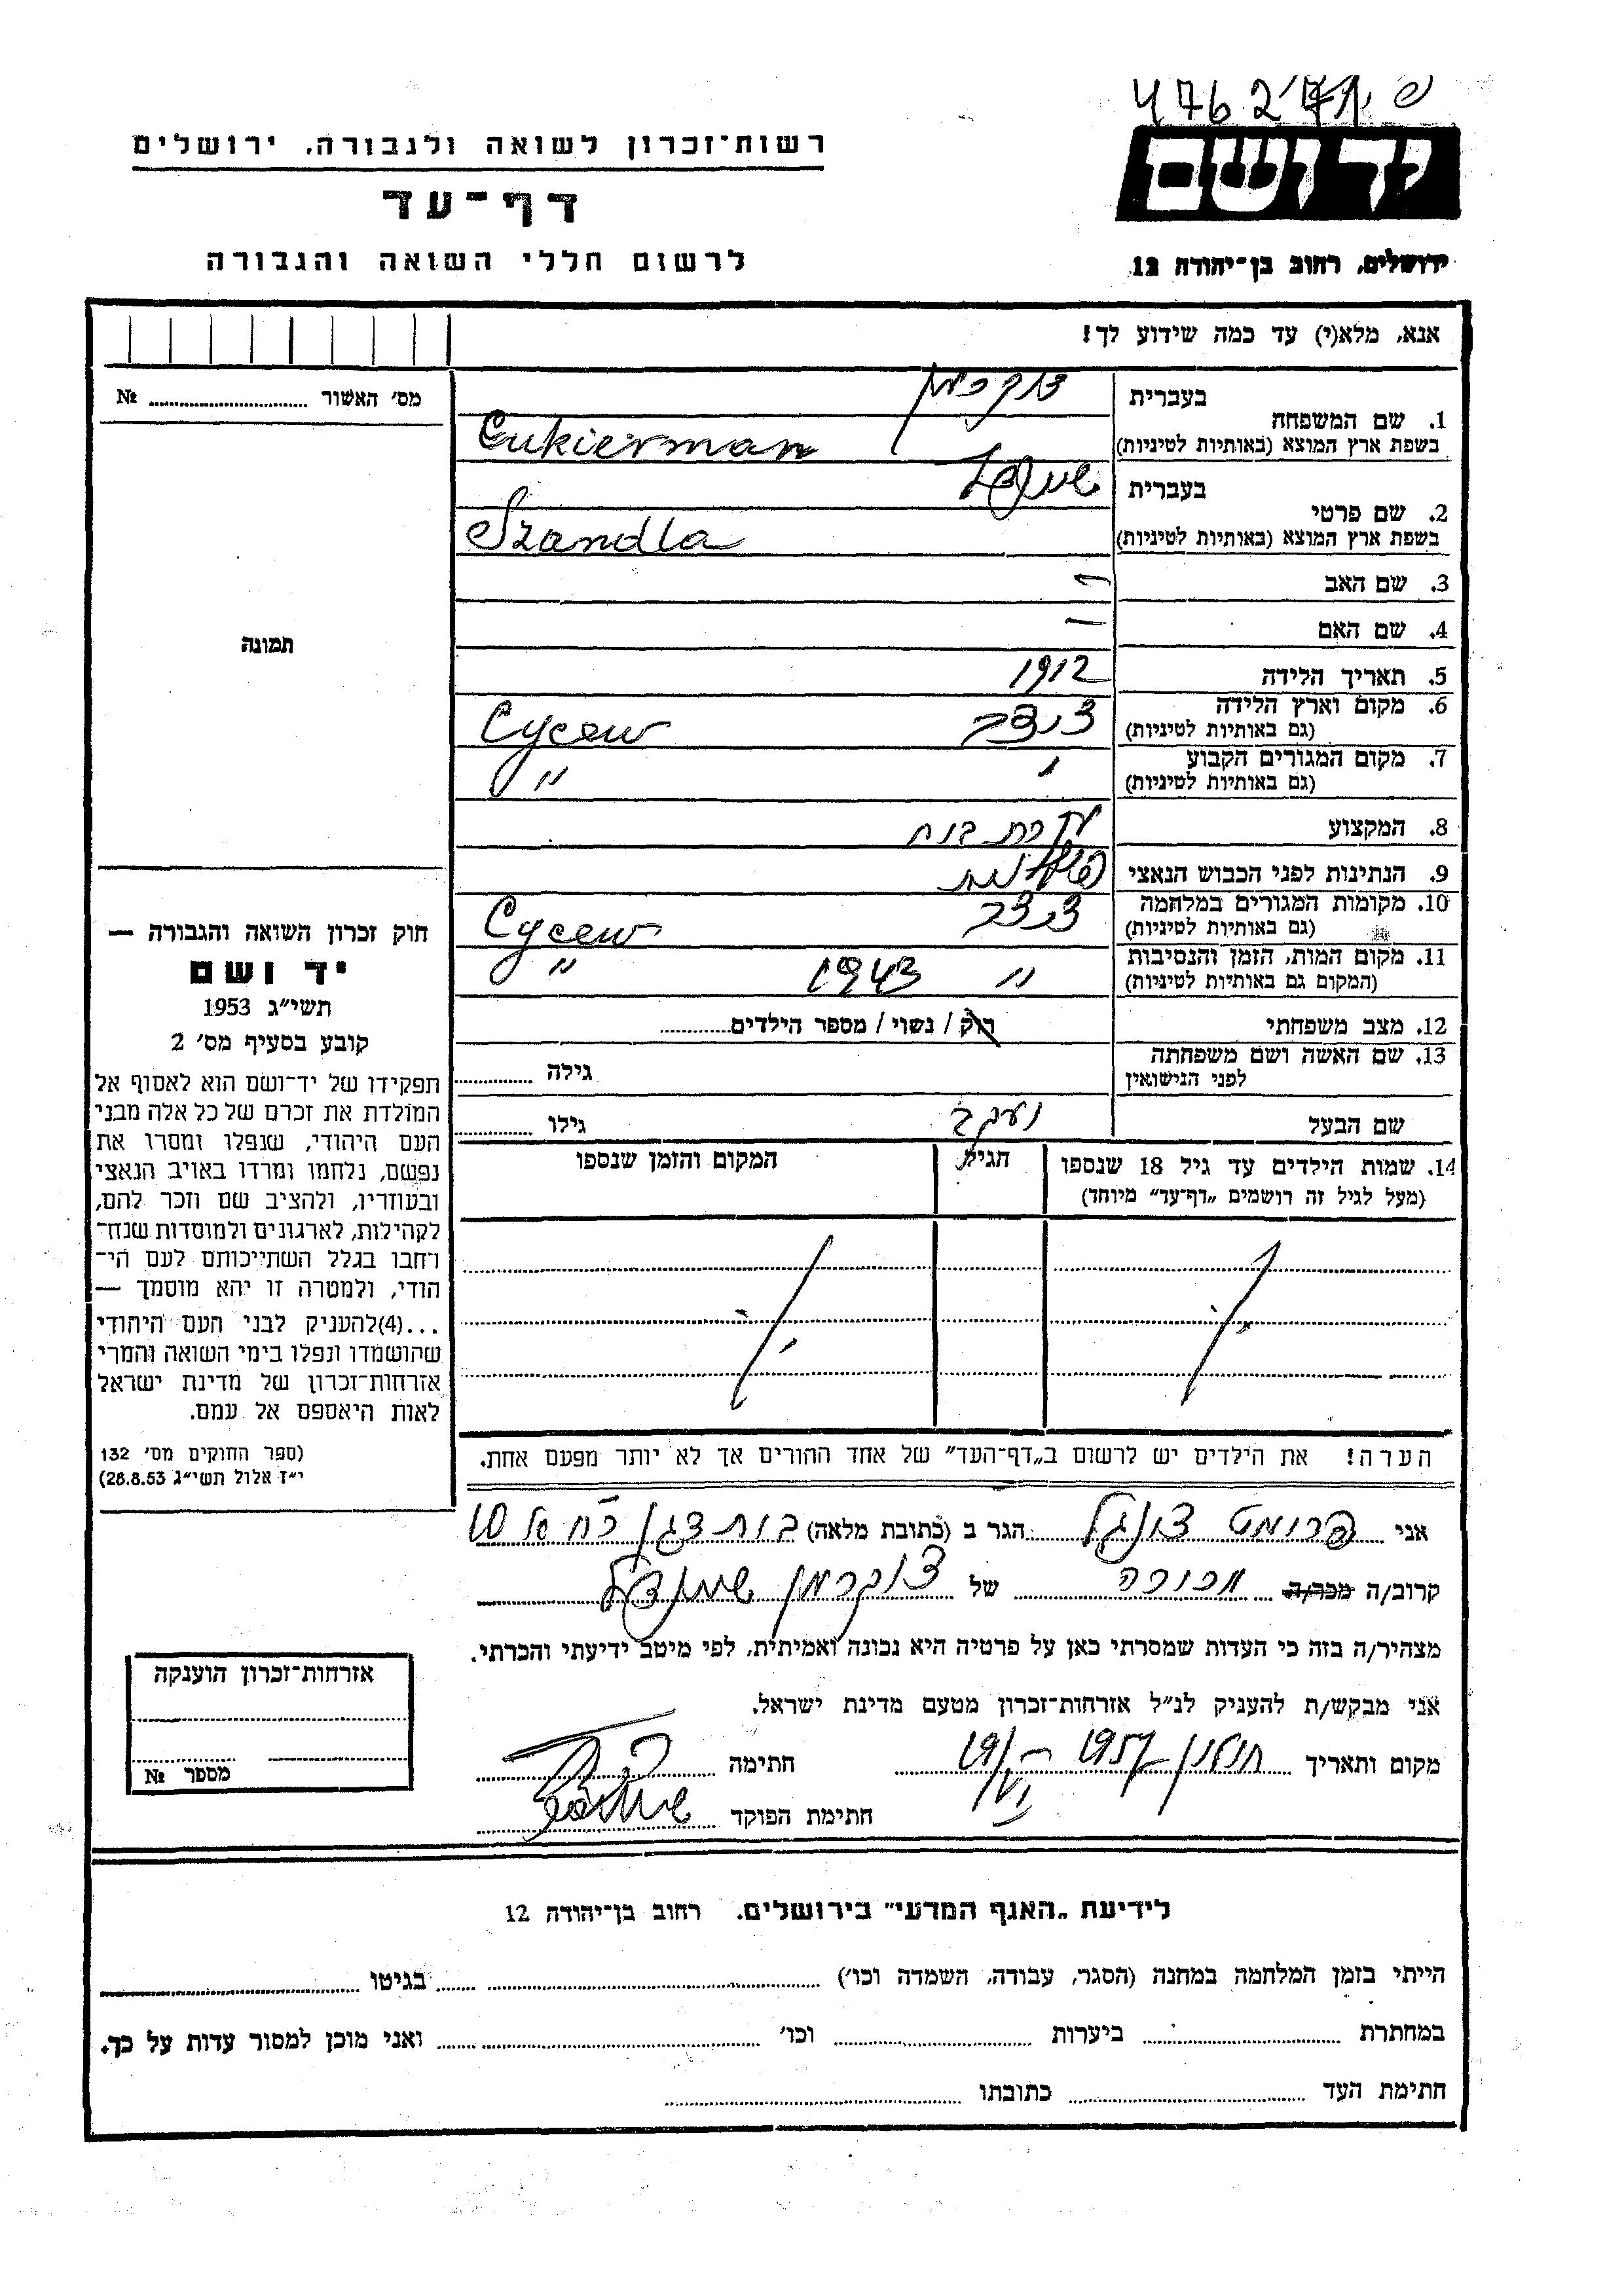 476271 פ
יד ושם
ירושלים, רחוב בן־יהודה 12
רשות־זכרון לשואה ולגבורה, ירושלים
דף־עד
לרשום חללי השואה והגבורה
אנא, מלא(י) עד כמה שידוע לך!
מס׳ האשור ........ №
תמונה
1. שם המשפחה בעברית צוקרמן
בשפת ארץ המוצא (באותיות לטיניות) Cukierman
2. שם פרטי בעברית
בשפת ארץ המוצא (באותיות לטיניות) Szandla
3. שם האב –
4. שם האם –
5. תאריך הלידה 1912
6. מקום וארץ הלידה
(גם באותיות לטיניות) Cycew
7. מקום המגורים הקבוע
(גם באותיות לטיניות) " "
8. המקצוע עקרת בית
9. הנתינות לפני הכבוש הנאצי פולנית
10. מקומות המגורים במלחמה
(גם באותיות לטיניות) Cycew
11. מקום המות, הזמן והנסיבות
(המקום גם באותיות לטיניות) " 1943 "
12. מצב משפחתי רוק / נשוי / מספר הילדים
13. שם האשה ושם משפחתה
לפני הנישואין גילה
שם הבעל יעקב גילו
14. שמות הילדים עד גיל 18 שנספו הגיל המקום והזמן שנספו
(מעל לגיל זה רושמים „דף־עד” מיוחד)
הערה! את הילדים יש לרשום ב„דף־העד” של אחד ההורים אך לא יותר מפעם אחת.
חוק זכרון השואה והגבורה —
יד ושם
תשי״ג 1953
קובע בסעיף מס׳ 2
תפקידו של יד־ושם הוא לאסוף אל
המולדת את זכרם של כל אלה מבני
העם היהודי, שנפלו ומסרו את
נפשם, נלחמו ומרדו באויב הנאצי
ובעוזריו, ולהציב שם וזכר להם,
לקהילות, לארגונים ולמוסדות שנח־
רחבו בגלל השתייכותם לעם הי־
הודי, ולמטרה זו יהא מוסמך —
...(4) להעניק לבני העם היהודי
שהושמדו ונפלו בימי השואה והמרי
אזרחות־זכרון של מדינת ישראל
לאות היאספם אל עמם.
(ספר החוקים מס׳ 132
י״ז אלול תשי״ג 28.8.53)
אני הגר ב (כתובת מלאה) בית דגן
קרוב/ה מכר/ה מכירה של צוקרמן
מצהיר/ה בזה כי העדות שמסרתי כאן על פרטיה היא נכונה ואמיתית, לפי מיטב ידיעתי והכרתי.
אני מבקש/ת להעניק לנ״ל אזרחות־זכרון מטעם מדינת ישראל.
מקום ותאריך חולון 19/VI – 1957 חתימה
חתימת הפוקד
אזרחות־זכרון הוענקה
מספר №
לידיעת „האגף המדעי” בירושלים. רחוב בן־יהודה 12
הייתי בזמן המלחמה במחנה (הסגר, עבודה, השמדה וכו׳) בגיטו
במחתרת ביערות וכו׳ ואני מוכן למסור עדות על כך.
חתימת העד כתובתו